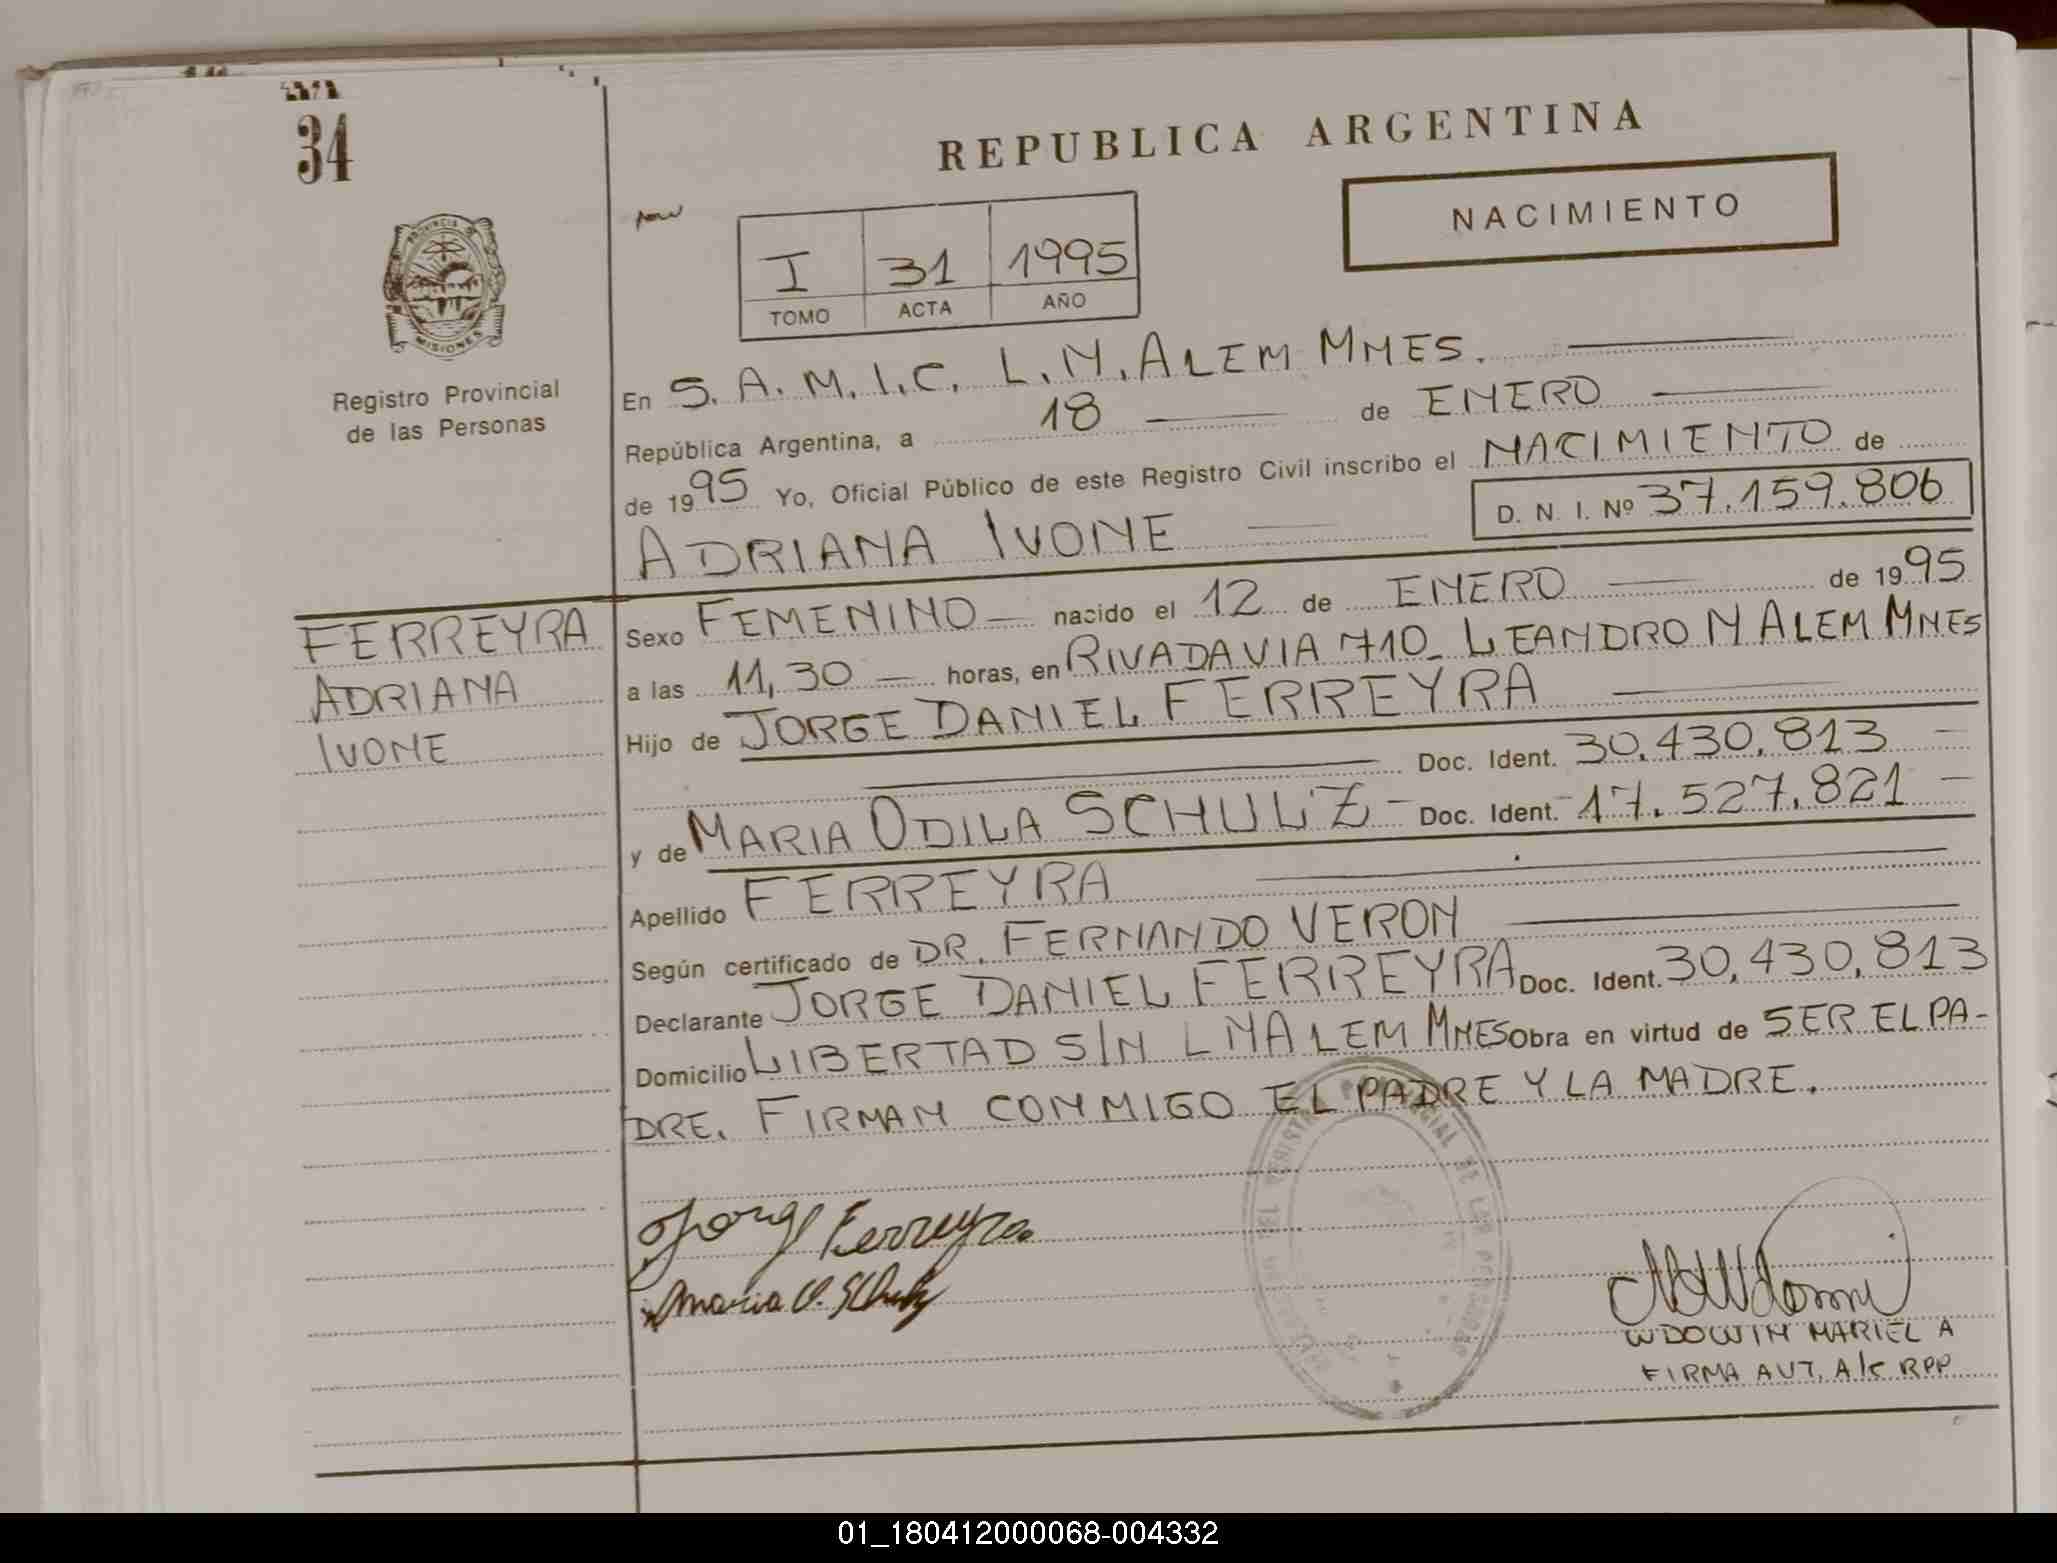 34
REPUBLICA ARGENTINA
NACIMIENTO
I 31 1995
TOMO ACTA AÑO
PROVINCIA DE
MISIONES
Registro Provincial
de las Personas
En S.A.M.I.C. L.N. ALEM MNES.
República Argentina, a 18 de ENERO
de 1995 Yo, Oficial Público de este Registro Civil inscribo el NACIMIENTO de
ADRIANA IVONE D. N. I. Nº 37.159.806
FERREYRA
ADRIANA
IVONE
Sexo FEMENINO nacido el 12 de ENERO de 1995
a las 11,30 horas, en RIVADAVIA 710_ LEANDRO N ALEM MNES
Hijo de JORGE DANIEL FERREYRA
Doc. Ident. 30.430.813
y de MARIA ODILA SCHULZ - Doc. Ident. 17.527.821
Apellido FERREYRA
Según certificado de DR. FERNANDO VERON
Declarante JORGE DANIEL FERREYRA Doc. Ident. 30.430.813
Domicilio LIBERTAD S/N L N ALEM MNES Obra en virtud de SER EL PA-
DRE. FIRMAN CONMIGO EL PADRE Y LA MADRE.
REGISTRO PROVINCIAL DE LAS PERSONAS
Jorge Ferreyra
Maria O. Schulz
WDOWIN MARIEL A
FIRMA AUT. A/C RPP
01_180412000068-004332